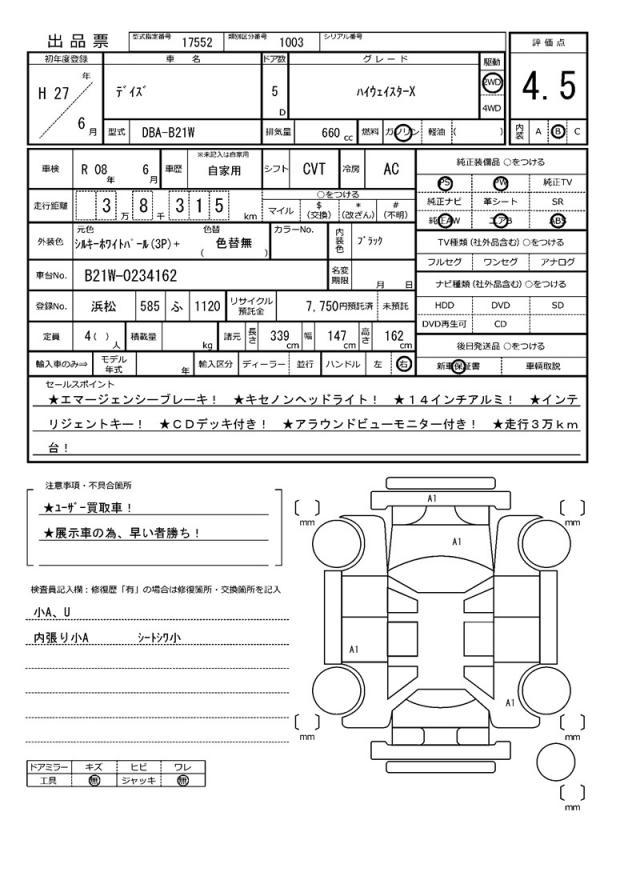 出品票 型式指定番号 17552 類別区分番号 1003 シリアル番号
評価点
4.5
内装 A B C
初年度登録 車名 ドア数 グレード 駆動
H 27 年 6 月 ﾃﾞｲｽﾞ 5 D ﾊｲｳｪｲｽﾀｰX 2WD 4WD
型式 DBA-B21W 排気量 660 cc 燃料 ガソリン 軽油 ( )
車検 R 08 年 6 月 車歴 ※未記入は自家用 自家用 シフト CVT 冷房 AC
走行距離 3 万 8 千 3 1 5 km ○をつける マイル $ (交換) * (改ざん) # (不明)
外装色 元色 ｼﾙｷｰﾎﾜｲﾄﾊﾟｰﾙ(3P)+ 色替 ( 色替無 ) カラーNo. 内装色 ﾌﾞﾗｯｸ
車台No. B21W-0234162 名変期限 月 日
登録No. 浜松 585 ふ 1120 リサイクル預託金 7,750円預託済 未預託
定員 4( ) 人 積載量 kg 諸元 長さ 339 cm 幅 147 cm 高さ 162 cm
輸入車のみ⇒ モデル年式 年 輸入区分 ディーラー 並行 ハンドル 左 右
純正装備品 ○をつける
PS PW 純正TV
純正ナビ 革シート SR
純正AW エアB ABS
TV種類 (社外品含む) ○をつける
フルセグ ワンセグ アナログ
ナビ種類 (社外品含む) ○をつける
HDD DVD SD
DVD再生可 CD
後日発送品 ○をつける
新車保証書 車輌取説
セールスポイント
★エマージェンシーブレーキ！ ★キセノンヘッドライト！ ★１４インチアルミ！ ★インテ
リジェントキー！ ★ＣＤデッキ付き！ ★アラウンドビューモニター付き！ ★走行３万ｋｍ
台！
注意事項・不具合箇所
★ﾕｰｻﾞｰ買取車！
★展示車の為、早い者勝ち！
検査員記入欄：修復歴「有」の場合は修復箇所・交換箇所を記入
小A、U
内張り小A ｼｰﾄｼﾜ小
ドアミラー キズ ヒビ ワレ
工具 無 ジャッキ 無
A1
[ ] mm [ ] mm
A1
A1
A1
[ ] mm [ ] mm
[ ] mm